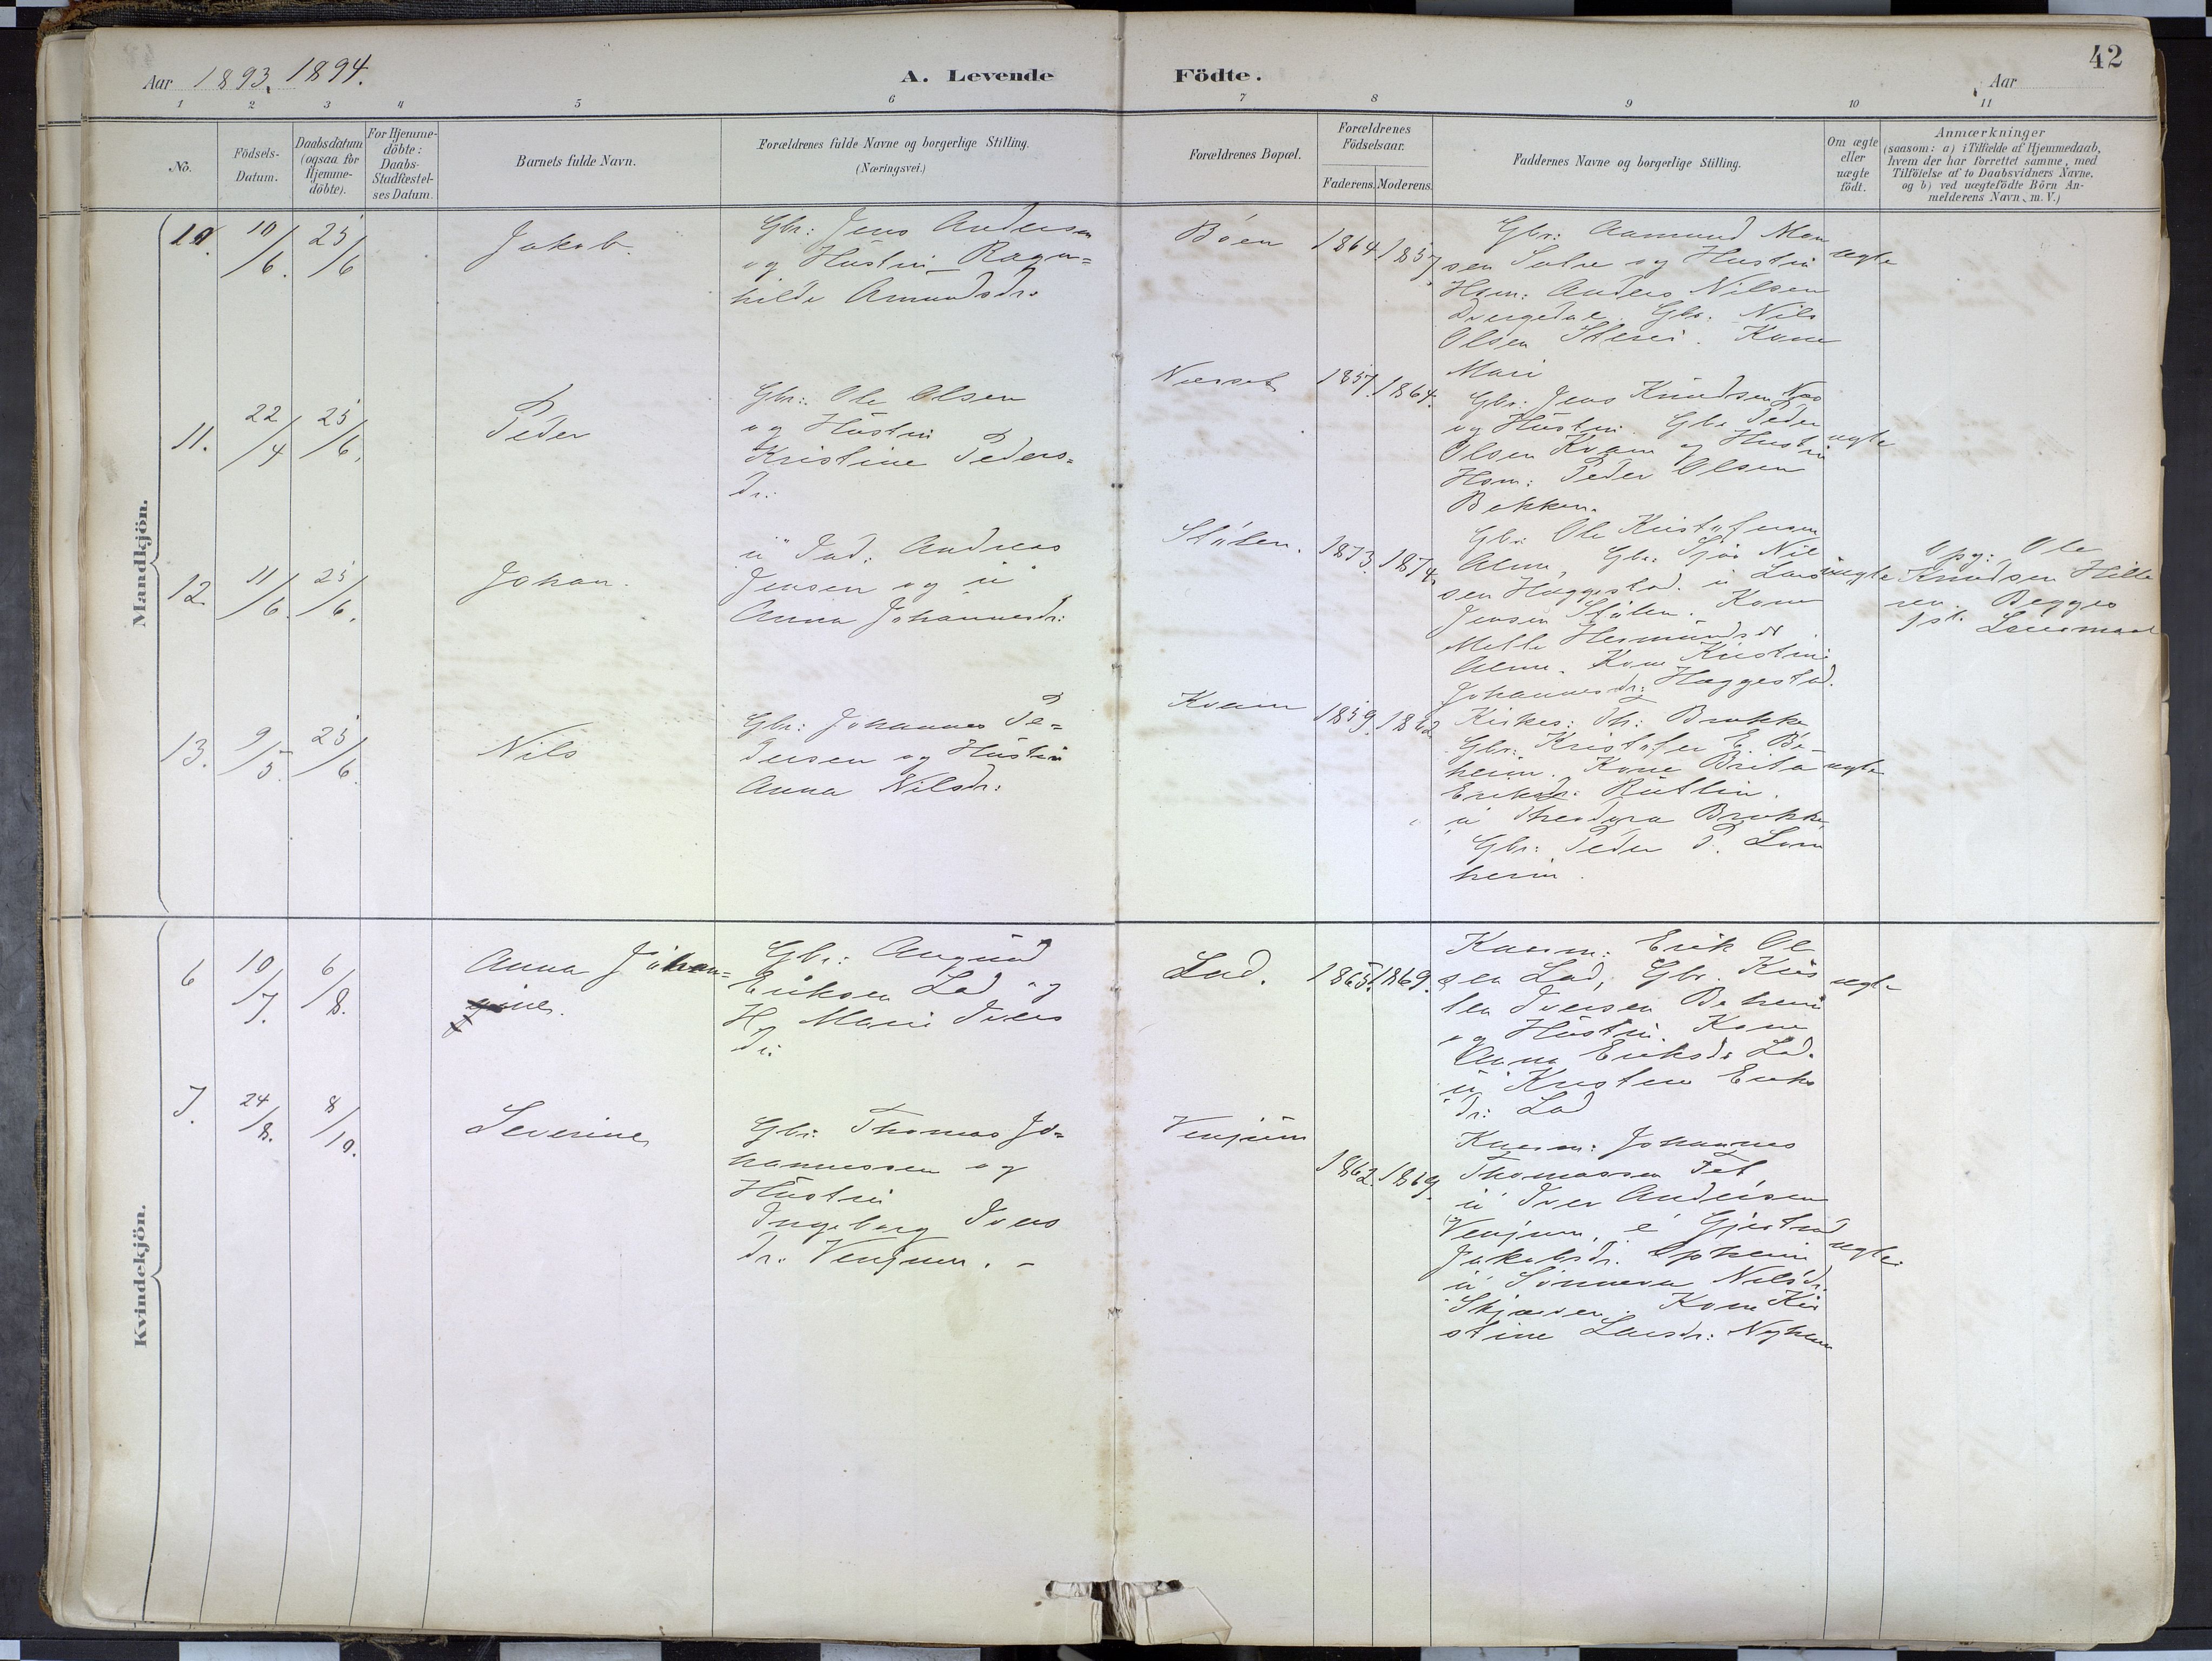 42
Aar 1893, 1894.
A. Levende Födte.
Aar
1 2 3 4 5 6 7 8 9 10 11
No.
Födsels-
Datum.
Daabsdatum
(ogsaa for
Hjemme-
döbte).
For Hjemme-
döbte:
Daabs-
Stadfæstel-
ses Datum.
Barnets fulde Navn.
Forældrenes fulde Navne og borgerlige Stilling.
(Næringsvei.)
Forældrenes Bopæl.
Forældrenes
Födselsaar.
Faderens. Moderens.
Faddernes Navne og borgerlige Stilling.
Om ægte
eller
uægte
födt.
Anmærkninger
(saasom: a) i Tilfælde af Hjemmedaab,
hvem der har forrettet samme, med
Tilföielse af to Daabsvidners Navne.
og b) ved uægtefödte Börn An-
melderens Navn, m. V.)
Mandkjön.
10. 10/6. 25/6 Jakob.
Gbr: Jens Andersen
og Hustru Ragn=
hilde Amundsdr:
Böen 1864. 1857.
Gbr: Aamund Mon
sen Salre og Hustru
Hsm: Anders Nilsen
Dvergedal. Gbr: Nils
Olsen Kone
Mari
ægte
11. 22/4 25/6. Peder
Gbr: Ole Olsen
og Hustru
Kristine Peders=
dr:
Nærset 1857. 1864.
Gbr: Jens Knudsen
og Hustru. Gbr Peder
Olsen Kvam og Hustru
Hsm: Peder Olsen
Bekken.
ægte
12. 11/6. 25/6. Johan.
u" Fad: Andreas
Jensen og u"
Anna Johannesdr:
Stölen. 1873. 1874.
Gbr: Ole Kristofersen
Alme, Gbr: Sjør Nil
sen Haggestad. u Lars
Jensen Stölen. Kone
Mette Hermundsdr
Alme. Kone Kristine
Johannesdr: Haggestad.
uægte
Opg: Ole
Knudsen Hille
ren. Begges
1st. Leiermaal
13. 9/5. 25/6. Nils
Gbr: Johannes Pe=
dersen og Hustru
Anna Nilsdr:
Kvam 1859. 1862.
Kirkes: Th: Brukke
Gbr: Kristofer E. Bö-
heim. Kone Brita
Eriksdr: Rutlin.
u Theodora Brukke,
Gbr: Peder P. Lom
heim.
ægte
Kvindekjön.
6 10/7. 6/8. Anna Johan=
ine.
Gbr: Angrind
Eriksen Lad og
H. Mari Ivers
dr:
Lad. 1865. 1869.
Kaarm: Erik Ol
sen Lad, Gbr. Kris
ten Iversen Böheim
og Hustru. Kone
Anna Eriksdr Lad.
u Kristine Eriks
dr: Lad
ægte
7. 24/8. 8/10. Severine
Gbr: Thomas Jo=
hannessen og
Hustru
Ingeborg Ivers
dr: Venjum. -
Venjum
1862. 1869.
Kaarm: Johannes
Thomassen Fet,
u Iver Andersen
Venjum, e Gjertrud
Jakobsdr. Opheim
u Sönneva Nilsdr
Skjærven. Kone Kri
stine Larsdr: Nyheim
ægte.